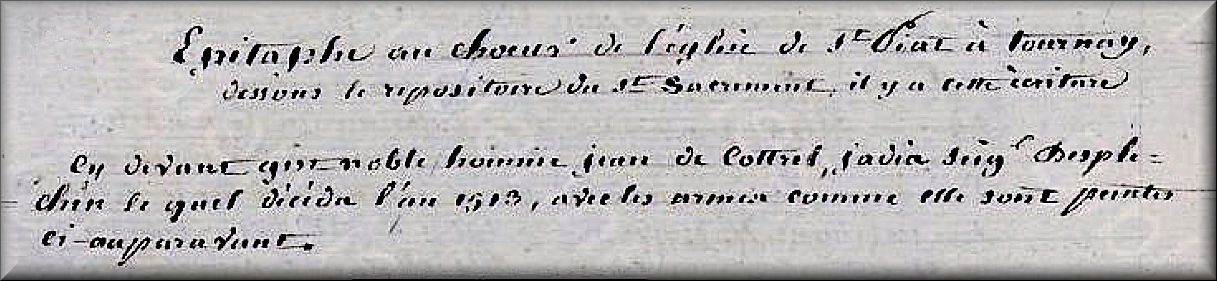 Epitaphe au choeur de l'église de St Piat à tournay,
dessous le repositoire du St Sacrement, il y a cette écriture
Cy devant gist noble homme jean de Cottrel, jadis seigr Desple=
chin le quel décéda l'an 1513, avec les armes comme elle sont peintes
ci-auparavant.